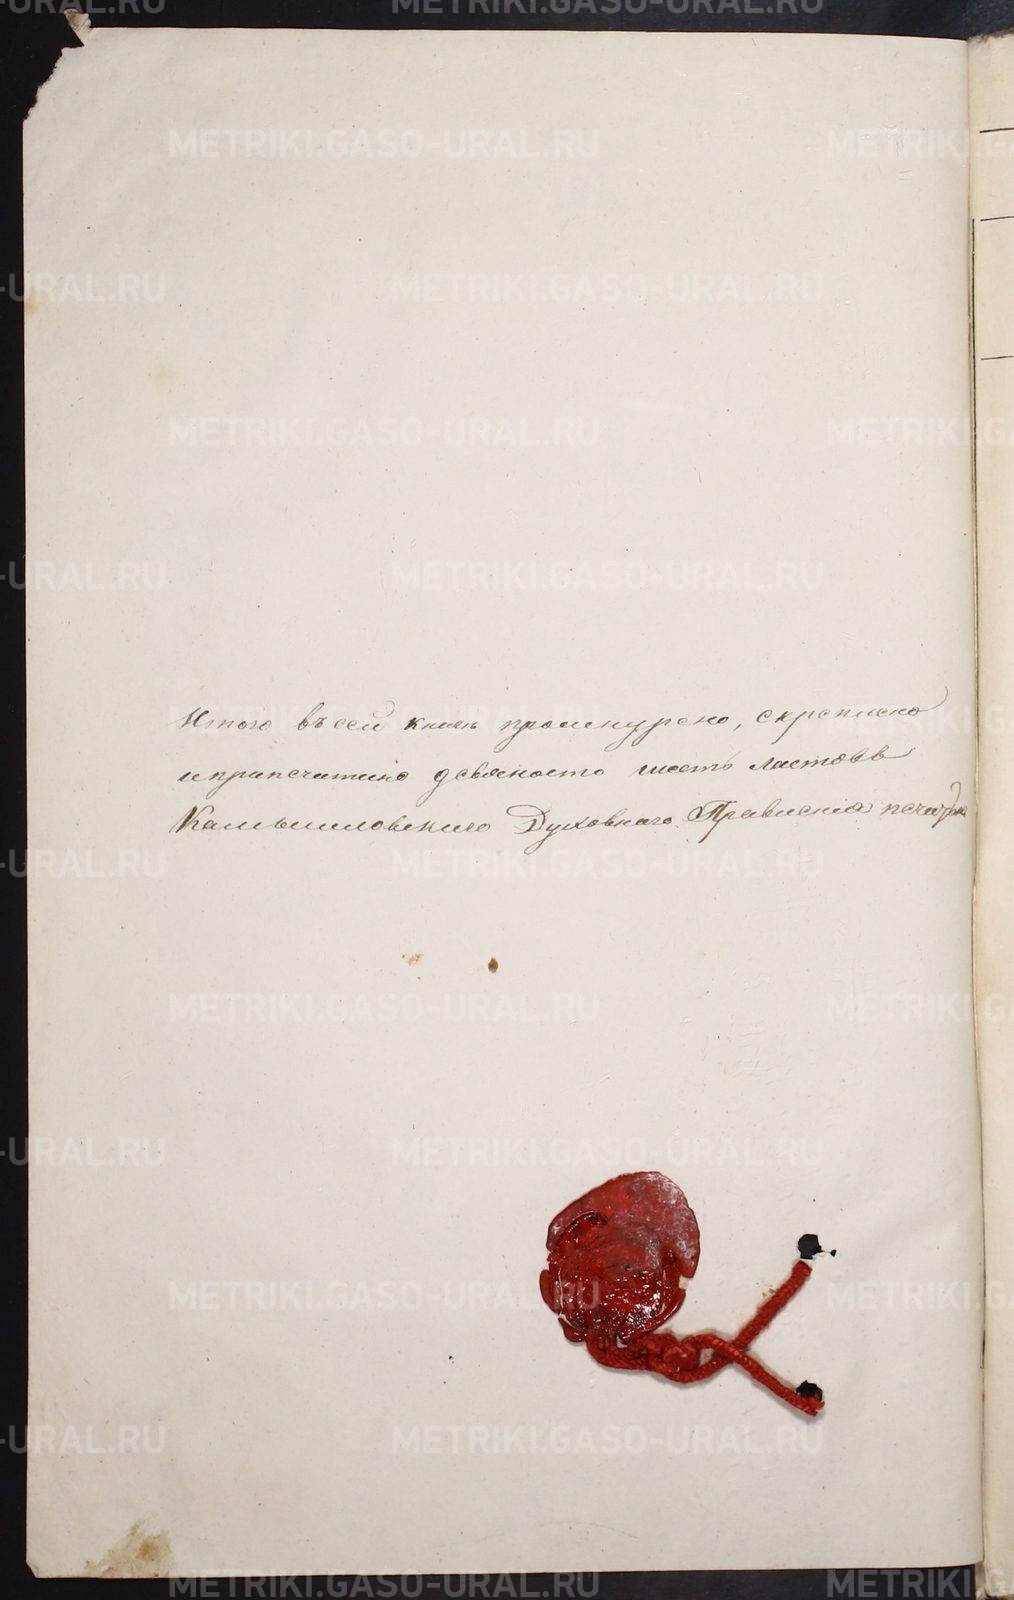 METRIKI.GASO-URAL.RU
Итого въ сей книгѣ прошнурено, скреплено
и припечатано девяносто шесть листовъ
Камышловскаго Духовнаго Правленія печатью